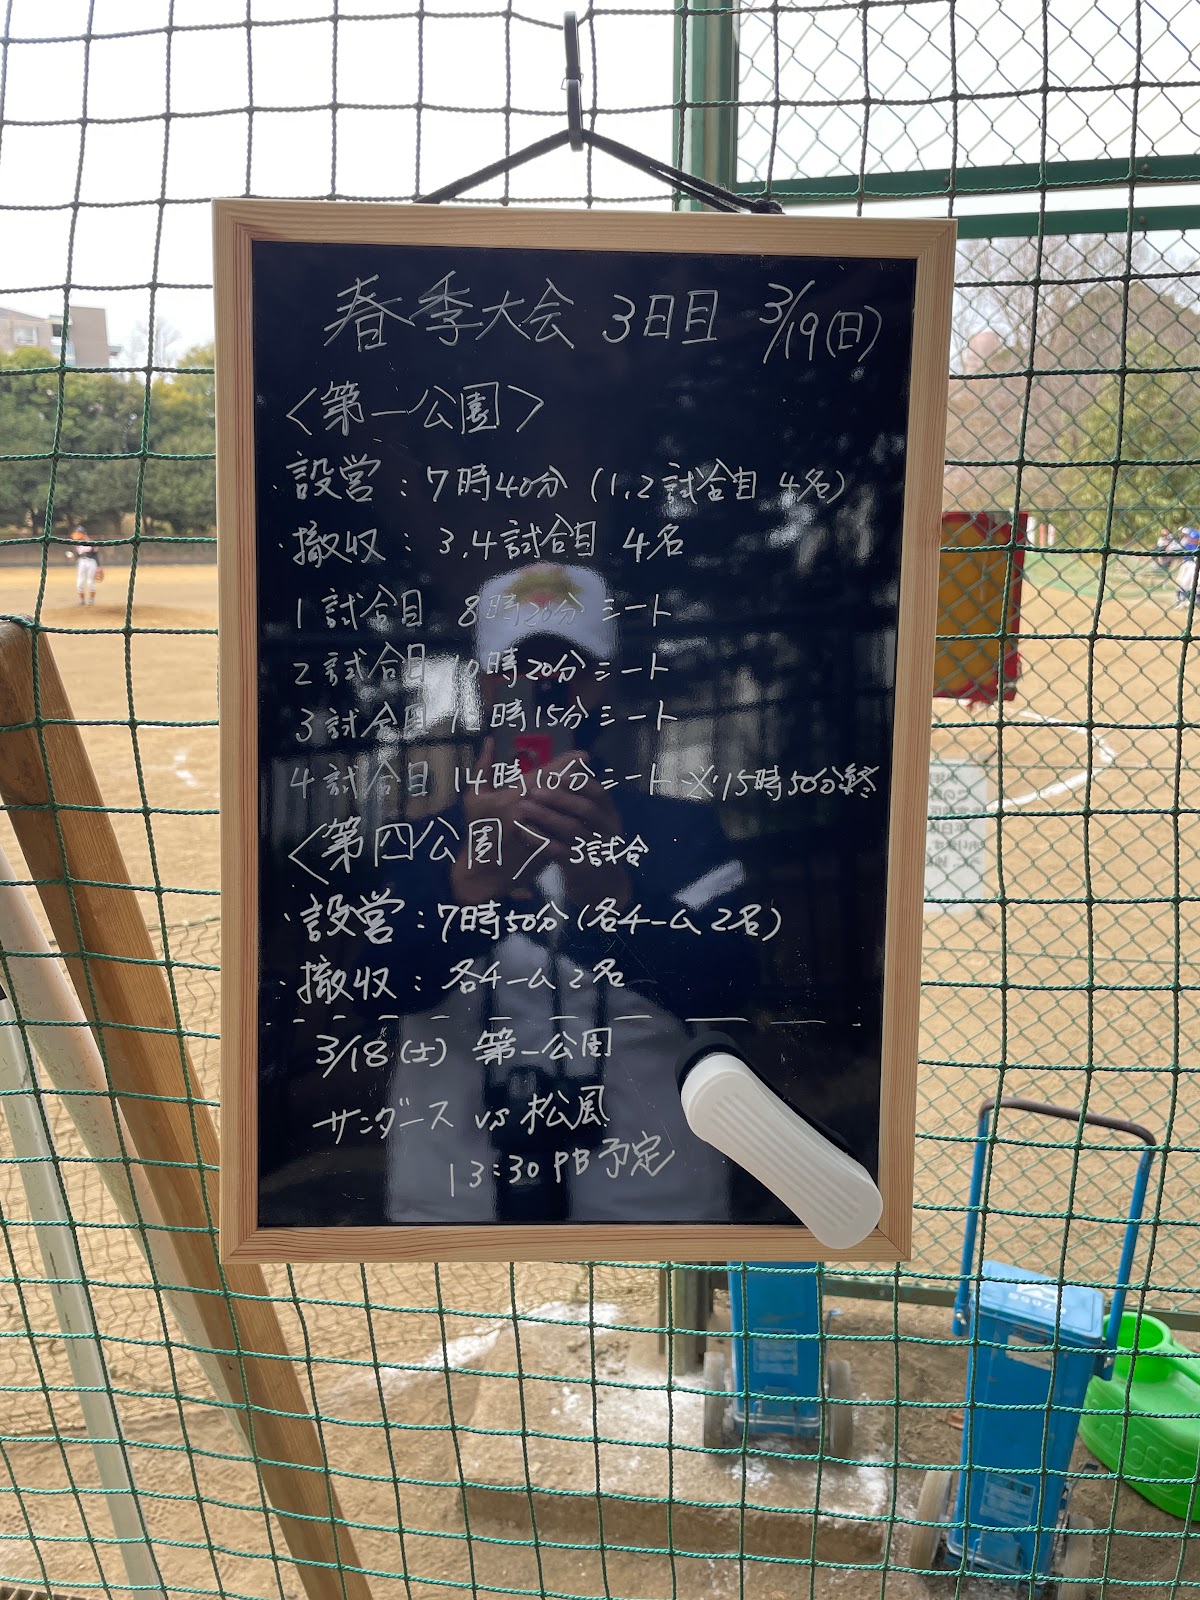 春季大会 3日目 3/19(日)
〈第一公園〉
・設営：7時40分（1,2試合目 4名）
・撤収：3,4試合目 4名
1試合目 8時20分シート
2試合目 10時20分シート
3試合目 12時15分シート
4試合目 14時10分シート ※15時50分終
〈第四公園〉3試合
・設営：7時50分（各チーム2名）
・撤収：各チーム2名
3/18（土）第一公園
サンダース vs 松風
13:30 PB予定